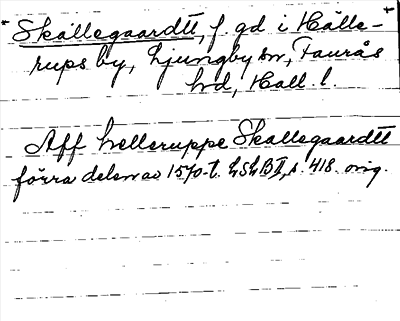 * Skällegaardtt, f. gd i Hälle- +
rups by, Ljungby sn, Faurås
hd, Hall. l.
Aff helleruppe Skallegaardtt
förra delen av 1570-t. LSLB II, s. 418. orig.